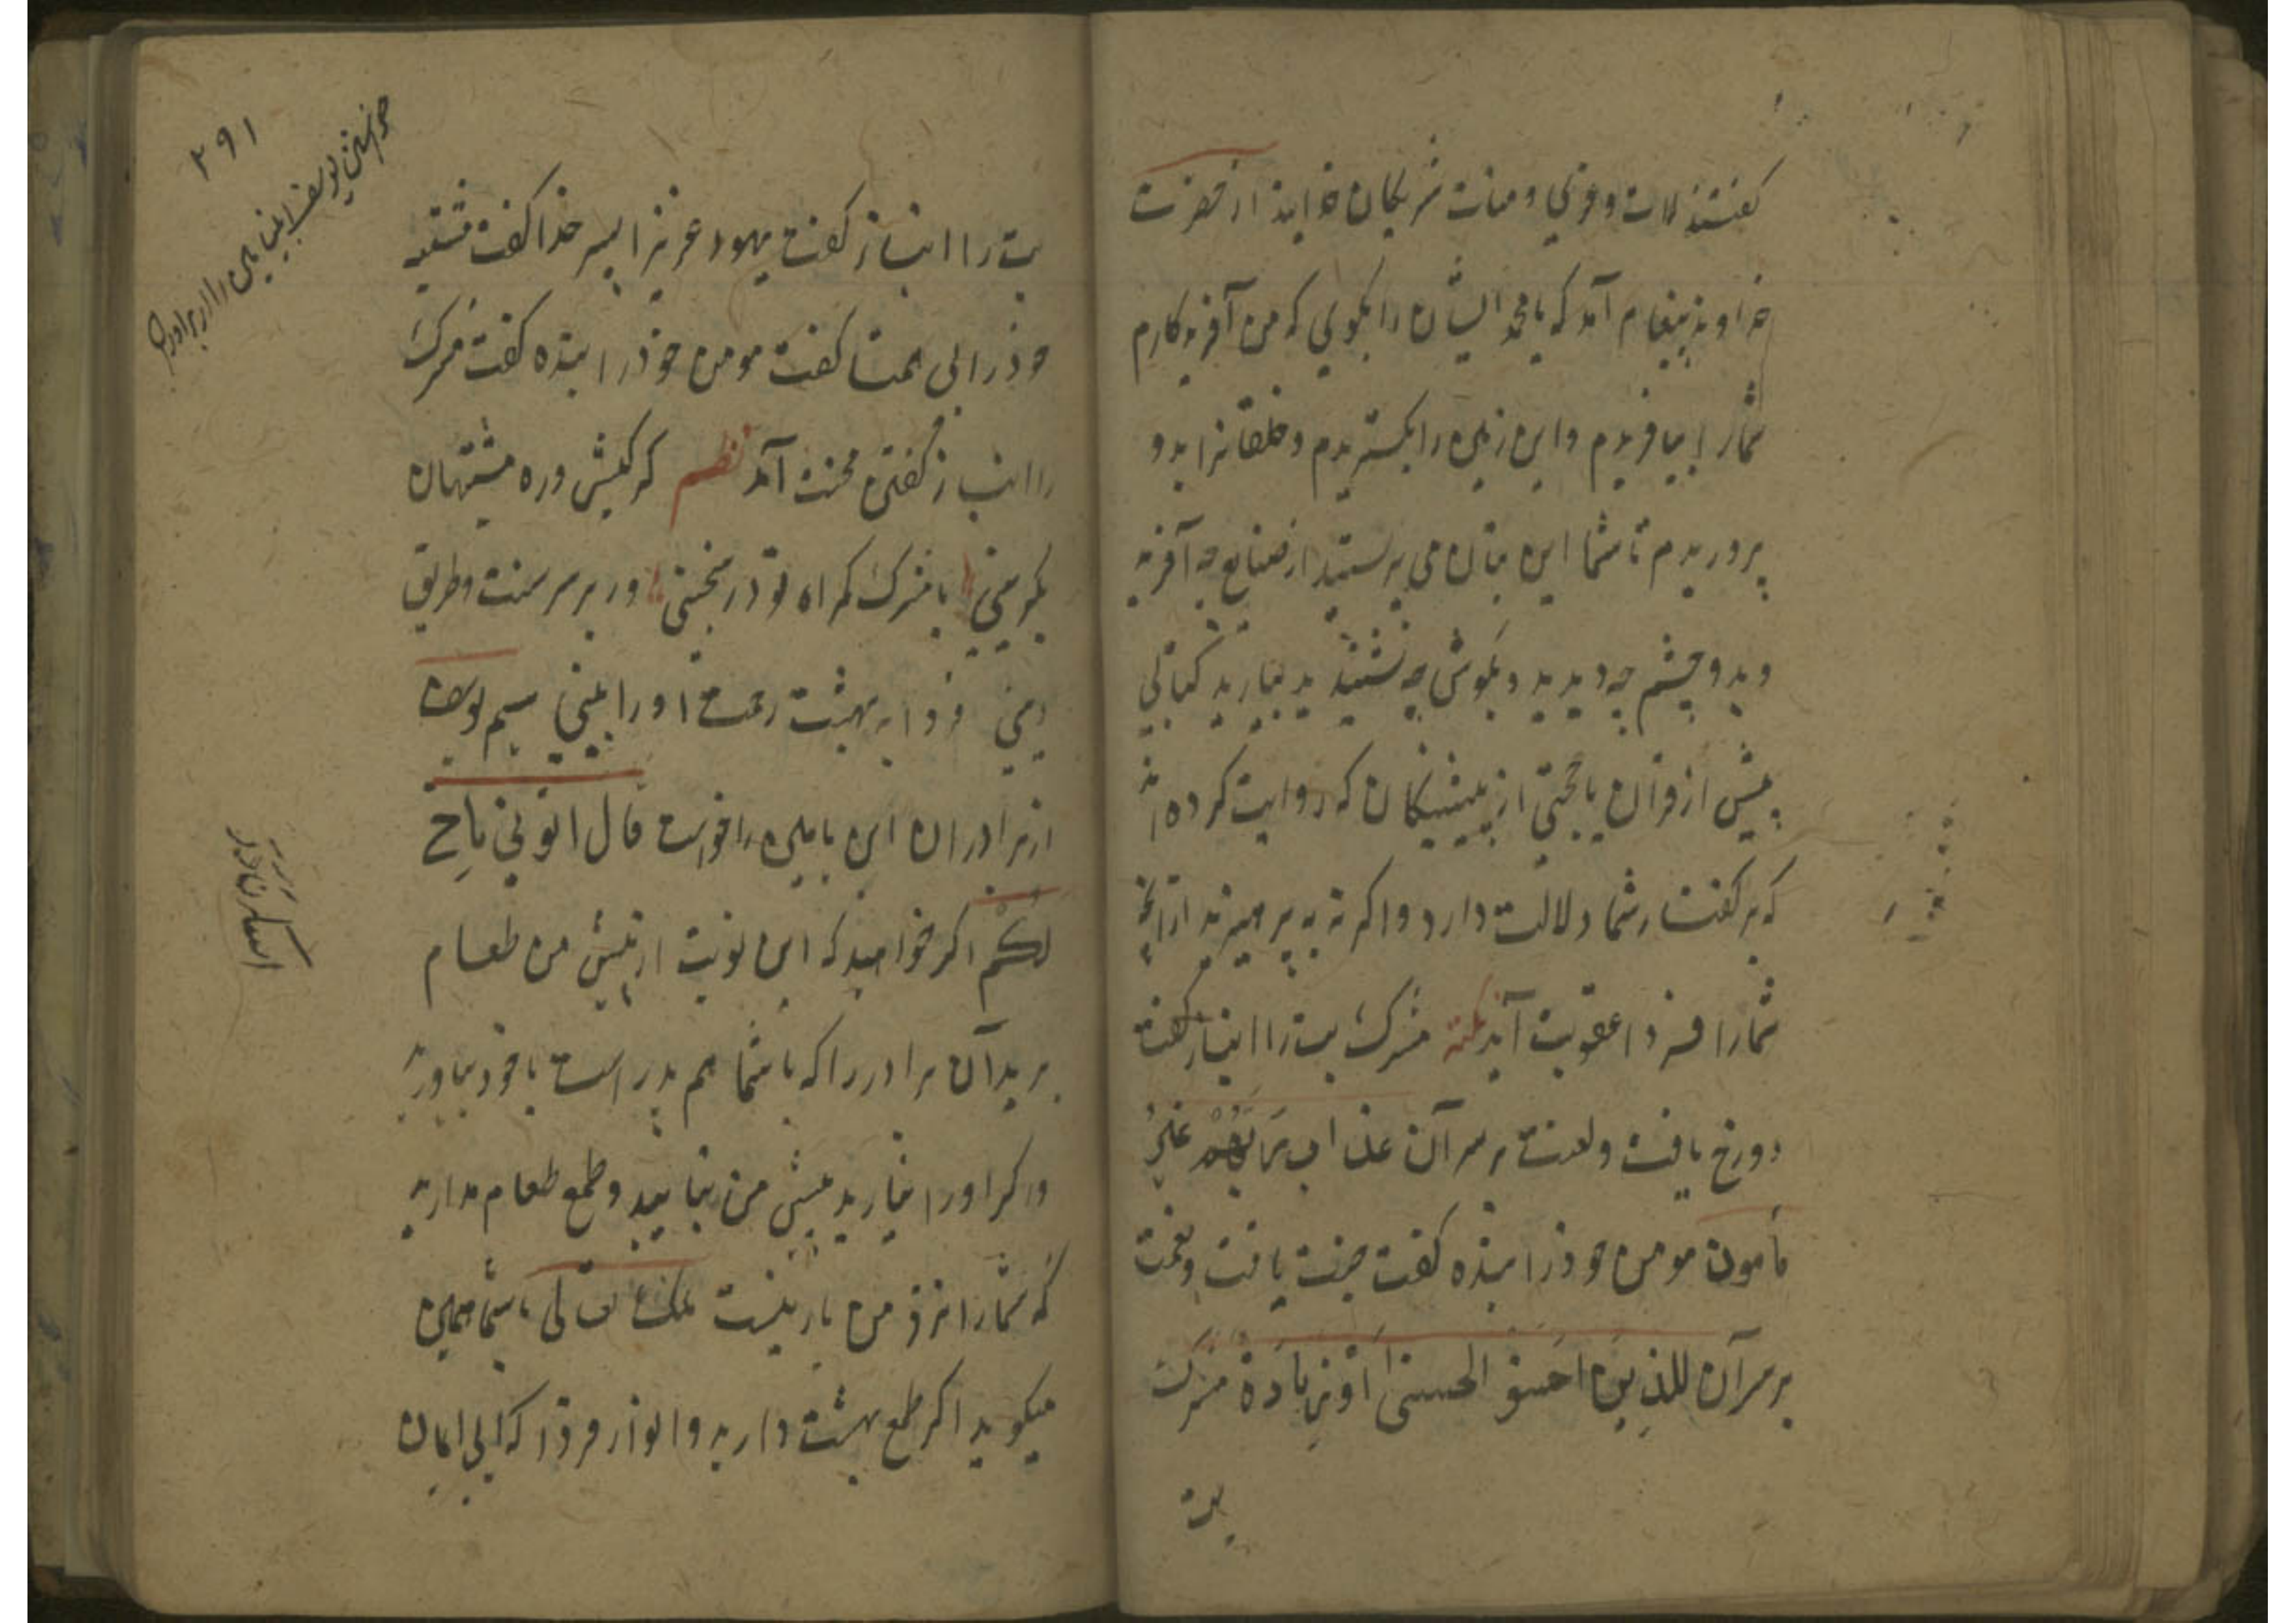 گفتند لات و عزی و منات شریکان خدایند از حضرت
خداوند پیغام آمد که یا محمد ایشان را بکوی که من آفریدکارم
شمارا بیافریدم و این زمین را بکستریدم و خلقانرا بدو
پروریدم تا شما این بتان می پرستید از صنایع چه آفرید
و بدو چشم چه دیدید و بکوش چه شنیدید بیارید کتابی
پیش از قران یا حجتی از پیشیکان که روایت کرده اند
که بر کفتار شما دلالت دارد و اکر نه بپرهیزید از آنچه
شمارا فردا عقوبت آید نکته مشرک بت را انباز کفت
دوزخ یافت و لعنت بر سر آن عذاب ربهم غیر
مامون مومن خودرا بنده کفت جنت یافت و نعمت
بر سر آن للذین احسنوا الحسنی و زیادة مشرک
بت
۲۹۱
خواستن یوسف ابنیامین را از برادران
بت را انباز کفت یهود عزیرا پسر خدا کفت مشتبه
خودرا بی همتا کفت مومن خودرا بنده کفت مشرک
را انباز کفتن محنت آمد نظم کر کیش و ره مشتبهان
بکزینی با مشرک کمراه تو در سجینی ور بر سر سنت و طریق
دینی فردا به بهشت رحمت اورا بینی سیم یوسف
از برادران ابن یامین را خواست قال ائتونی باخ
لکم اکر خواهید که این نوبت از پیش من طعام
برید آن برادر را که با شما هم پدر است با خود بیاورید
و اکر اورا نیارید پیش من نیایید و طمع طعام مدارید
که شمارا نزد من بار نیست ملک تعالی با شما همین
میکوید اکر طمع بهشت دارید و انوار فردا که بی ایمان